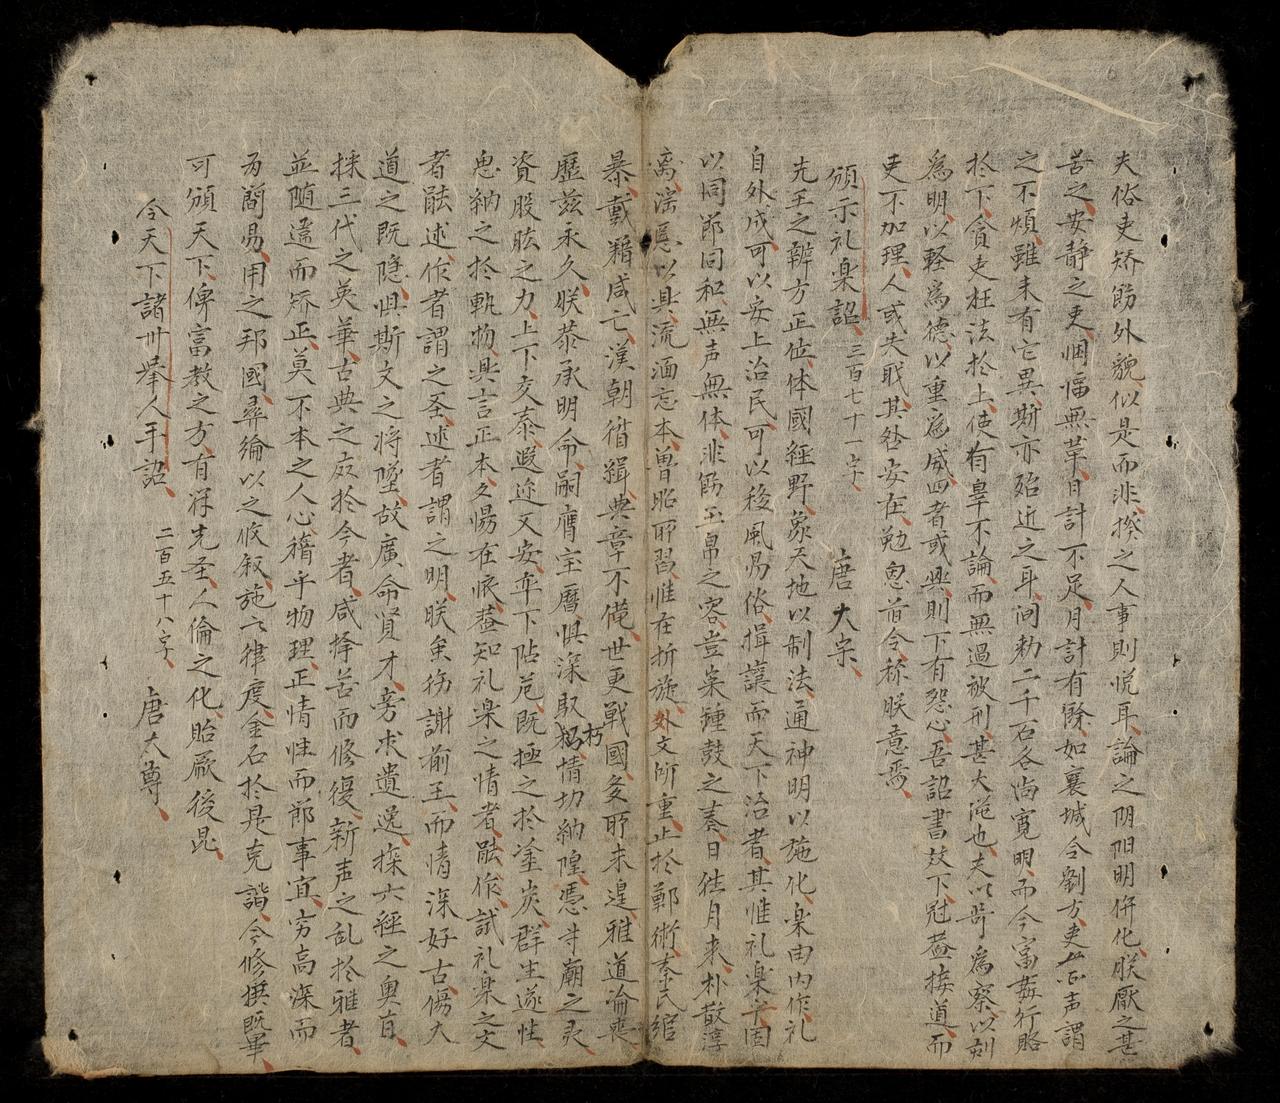 夫俗吏矯飾外貌似是而非揆之人事則悅耳論之阴阳明侔化朕厭之甚
苦之安静之吏悃愊無華日計不足月計有餘如襄城令劉方吏民同声謂
之不煩雖未有它異斯亦殆近之耳间勑二千石各尚寛明而今富姦行賂
扵下貪吏枉法扵上使有辜不論而無過被刑甚大逆也夫以苛為察以刻
為明以軽為徳以重為威四者或興則下有怨心吾詔書数下冠蓋接道而
吏不加理人或失職其咎安在勉思旧令称朕意焉
頒示礼楽詔 三百七十一字 唐太宗
先王之辨方正位体國經野象天地以制法通神明以施化楽由内作礼
自外成可以安上治民可以移風易俗揖讓而天下治者其惟礼楽乎固
以同節同和無声無体非飾玉帛之容豈楽鍾鼓之奏日徃月来朴散淳
离淫慝以興流湎忘本魯昭所習惟在折旋外文所重止扵鄭衛秦氏綰
暴載籍咸亡漢朝循緝典章不俻世更戦國多所未遑雅道淪喪
歷兹永久朕恭承明命嗣膺宝曆惧深馭朽情切納隍憑宗廟之灵
資股肱之力上下交泰遐迩乂安率下阽危既極之扵塗炭群生遂性
思納之扵軌物興言正本夕惕在懐蓋知礼楽之情者能作識礼楽之文
者能述作者謂之圣述者謂之明朕雖徳謝前王而情深好古傷大
道之既隐惧斯文之将墜故廣命賢才旁求遺逸探六經之奥旨
採三代之英華古典之廃扵今者咸择善而修復新声之乱扵雅者
並随違而矯正莫不本之人心稽乎物理正情性而節事宜穷高深而
为簡易用之邦國彛倫以之攸叙施之律度金石扵是克諧今修撰既畢
可頒天下俾富教之方有符先圣人倫之化貽厥後昆
令天下諸州舉人手詔 二百五十八字 唐太尊